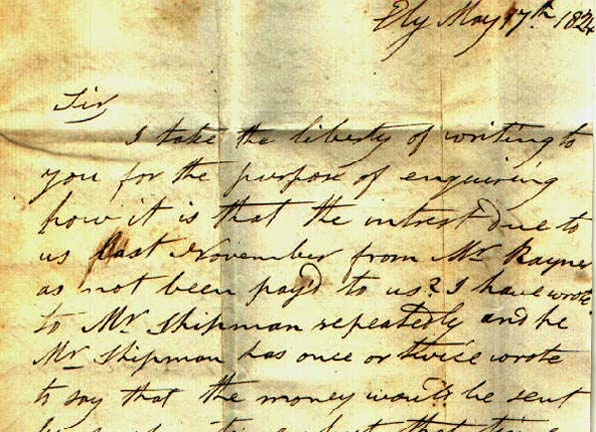 Ely May 17th 182
Sir
I take the liberty of writing to
you for the purpose of enquiring
how it is that the intrest due to
us last November from Mr Rayner
as not been pay'd to us? I have wrote
to Mr Shipman repeatedly and he
Mr Shipman has once or twice wrote
to say that the money would be sent